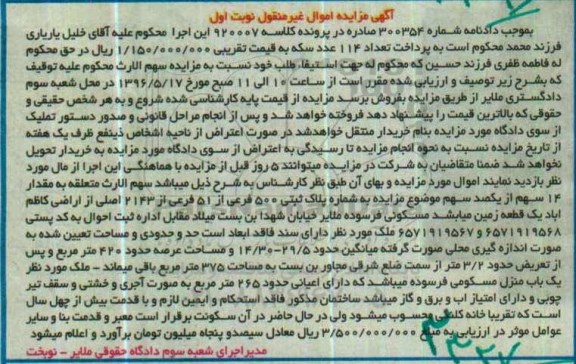 آگهی مزایده اموال غیرمنقول نوبت اول
بموجب دادنامه شماره ۳۰۰۳۵۴ صادره در پرونده کلاسه ۹۲۰۰۰۷ این اجرا محکوم علیه آقای خلیل یاریاری
فرزند محمد محکوم است به پرداخت تعداد ۱۱۴ عدد سکه به قیمت تقریبی ۱/۱۵۰/۰۰۰/۰۰۰ ریال در حق محکوم
له فاطمه ظفری فرزند حسین که محکوم له جهت استیفاء طلب خود نسبت به مزایده سهم الارث محکوم علیه توقیف
که بشرح زیر توصیف و ارزیابی شده مقرر است از ساعت ۱۰ الی ۱۱ صبح مورخ ۱۳۹۶/۵/۱۷ در محل شعبه سوم
دادگستری ملایر از طریق مزایده بفروش برسد مزایده از قیمت پایه کارشناسی شده شروع و به هر شخص حقیقی و
حقوقی که بالاترین قیمت را پیشنهاد دهد فروخته خواهد شد و پس از انجام مراحل قانونی و صدور دستور تملیک
از سوی دادگاه مورد مزایده بنام خریدار منتقل خواهدشد در صورت اعتراض از ناحیه اشخاص ذینفع ظرف یک هفته
از تاریخ مزایده نسبت به نحوه انجام مزایده تا رسیدگی به اعتراض از سوی دادگاه مورد مزایده به خریدار تحویل
نخواهد شد ضمنا متقاضیان به شرکت در مزایده میتوانند ۵ روز قبل از مزایده با هماهنگی این اجرا از مال مورد
نظر بازدید نمایند اموال مورد مزایده و بهای آن طبق نظر کارشناس به شرح ذیل میباشد سهم الارث متعلقه به مقدار
۱۴ سهم از یکصد سهم موضوع مزایده به شماره پلاک ثبتی ۵۰۰ فرعی از ۵۱ فرعی از ۲۱۴۳ اصلی از اراضی کاظم
اباد یک قطعه زمین میباشد مسکونی فرسوده ملایر خیابان شهدا بن بست میلاد مقابل اداره ثبت احوال به کد پستی
۶۵۷۱۹۱۹۵۶۸ و ۶۵۷۱۹۱۹۵۶۷ ملک مورد نظر دارای سند فاقد ابعاد است حد و حدودی و مساحت تعیین شده به
صورت اندازه گیری محلی صورت گرفته میانگین حدود ۲۹/۵-۱۴/۳۰ و مساحت عرصه حدود ۴۲۰ متر مربع و پس
از تعریض حدود ۳/۲ متر از سمت ضلع شرقی مجاور بن بست به مساحت ۳۷۵ متر مربع باقی میماند - ملک مورد نظر
یک باب منزل مسکونی فرسوده میباشد که دارای اعیانی حدود ۲۶۵ متر مربع به صورت آجری و خشتی و سقف تیر
چوبی و دارای امتیاز اب و برق و گاز میباشد ساختمان مذکور فاقد استحکام و ایمین لازم و با قدمت بیش از چهل سال
است که تقریبا خانه کلنگی محسوب میشود ولی در حال حاضر در آن سکونت برقرار است معبر و قدمت بنا و سایر
عوامل موثر در ارزیابی به مبلغ ۳/۵۰۰/۰۰۰/۰۰۰ ریال معادل سیصدو پنجاه میلیون تومان برآورد و اعلام میشود
مدیراجرای شعبه سوم دادگاه حقوقی ملایر - نوبخت